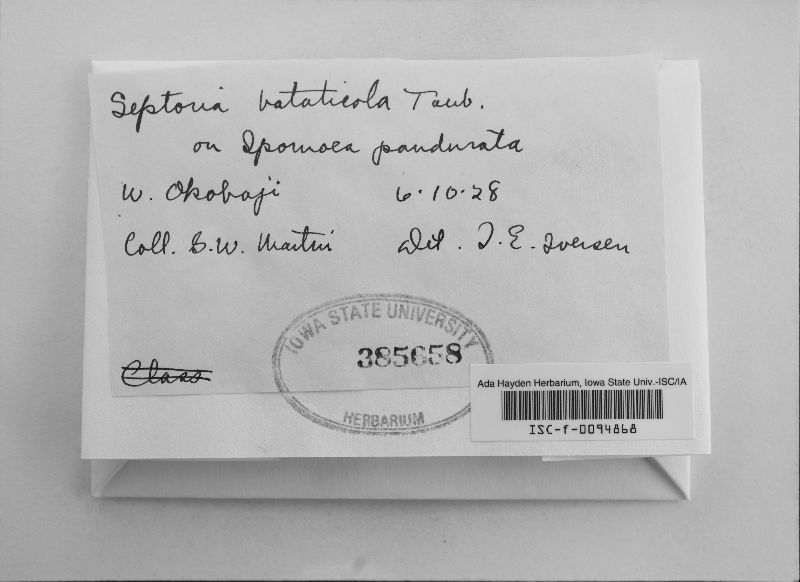 Septoria bataticola Taub.
on Ipomoea pandurata
W. Okoboji 6·10·28
Coll. G.W. Martin Det. T. E. Iversen
IOWA STATE UNIVERSITY
385658
Class
HERBARIUM
Ada Hayden Herbarium, Iowa State Univ.-ISC/IA
ISC-f-0094868